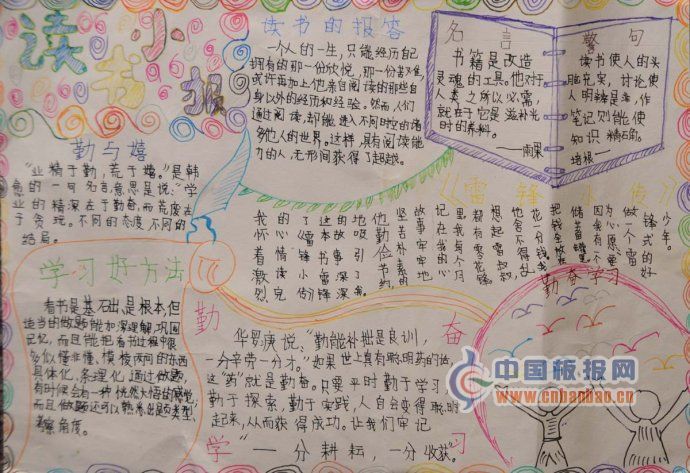 读书小报
读书的报答
一个人的一生,只能经历自己
拥有的那一份欣悦,那一份苦难,
或许再加上他亲自阅读的那些自
身以外的经历和经验。然而,人们
通过阅读,却能进入不同时空的诸
多他人的世界。这样,具有阅读能
力的人,无形间获得了超越
名言
书籍是改造
灵魂的工具。他对于
人类之所以必需,
就在于它是滋补光
时的养料。
——雨果
警句
读书使人的头
脑充实,讨论使
人明辨是非,作
笔记则能使
知识精确。
培根—
勤与嬉
“业精于勤,荒于嬉。”是韩
愈的一句名言,意思是说:“学
业的精深在于勤奋,而荒废在
于贪玩。不同的态度不同的
结局。
《雷锋小传》
少年。
锋式的好
做一个雷
因为心愿
学习好方法
看书是基础,是根本,但
适当的做题能加深理解,巩固
记忆,而且能把看书过程中很
多似懂非懂、模棱两可的东西
具体化,条理化,通过做题,
有时候会有一种恍然大悟的感觉,
而且做题还可以熟悉出题类型,
考察角度。
勤奋学习
勤奋学习
华罗庚说:“勤能补拙是良训,
一分辛劳一分才。”如果世上真有聪明药的话,
这“药”就是勤奋。只要平时勤于学习,
勤于探索,勤于实践,人自会变得聪明
起来,从而获得成功。让我们牢记
“一分耕耘,一分收获。”
中国板报网
www.cnbanbao.cn